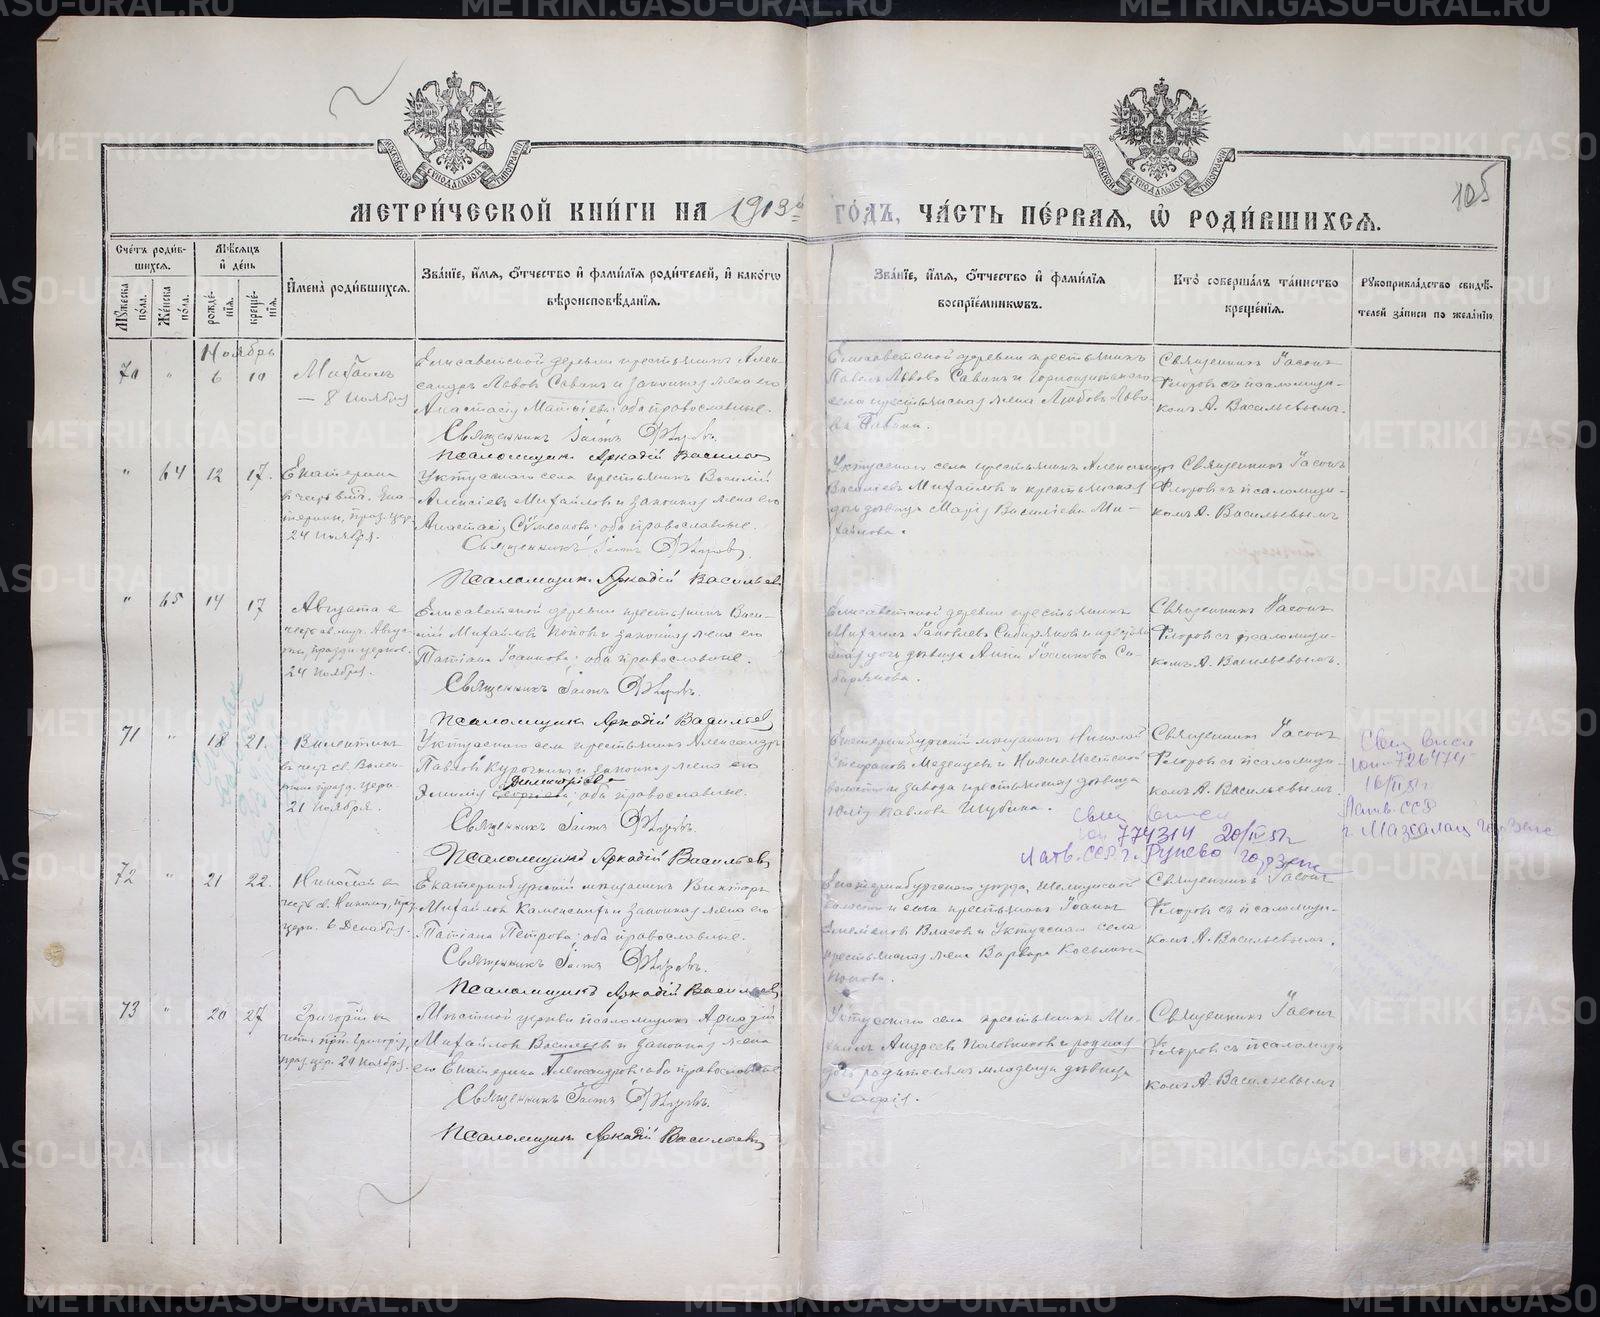 105
МЕТРИ́ЧЕСКОЙ КНИ́ГИ НА 1913й ГО́ДЪ, ЧА́СТЬ ПЕ́РВАЯ, Ѽ РОДИ́ВШИХСЯ.
Сче́тъ роди́в-
шихся.
Мꙋ́жеска по́ла.
Же́нска по́ла.
Мѣ́сяцъ
и҆ де́нь
рожде́-
нія.
креще́-
нія.
И҆мена̀ роди́вшихся.
Зва́нїе, и҆́мя, ѻ҆́тчество и҆ фами́лїя роди́телей, и҆ како́гѡ
вѣроисповѣ́данїя.
Зва́нїе, и҆́мя, ѻ҆́тчество и҆ фами́лїя
воспрїе́мникѡвъ.
Кто̀ соверша́лъ та́инство
креще́нїя.
Рꙋкоприкла́дство свидѣ́-
телей за́писи по жела́нїю.
Ноябрь
70 " 6 10
Михаилъ
– 8 ноября
Елисаветской деревни крестьянинъ Алек-
сандръ Львовъ Савинъ и законная жена его
Анастасія Матвіева; оба православные.
Священникъ Іасонъ Флоровъ.
Псаломщикъ Аркадій Васильевъ
Елисаветской деревни крестьянинъ
Павелъ Львовъ Савинъ и Горнощитскаго
села крестьянская жена Любовь Льво-
ва
Священникъ Іасонъ
Флоровъ съ псаломщи-
комъ А. Васильевымъ.
" 64 12 17.
Екатерина
въ честь вмч. Ека-
терины, празд. цер.
24 ноября.
Уктусскаго села крестьянинъ Василій
Алексіевъ Михайловъ и законная жена его
Анастасія Сѵмеонова; оба православные.
Священникъ Іасонъ Флоровъ
Псаломщикъ Аркадій Васильевъ
Уктусскаго села крестьянинъ Александръ
Василіевъ Михайловъ и крестьянская
дочь дѣвица Марія Василіева Ми-
хайлова.
Священникъ Іасонъ
Флоровъ съ псаломщи-
комъ А. Васильевымъ
" 65 14 17
Августа въ
честь св. муч. Авгус-
ты, праздн. церков.
24 ноября.
Елисаветской деревни крестьянинъ Васи-
лій Михайловъ Поповъ и законная жена его
Татіана Іоаннова; оба православные.
Священникъ Іасонъ Флоровъ.
Псаломщикъ Аркадій Васильевъ
Елисаветской деревни крестьянинъ
Михаилъ Іаковлевъ Сибиряковъ и крестьян-
ская дочь дѣвица Анна Іоаннова Си-
бирякова.
Священникъ Іасонъ
Флоровъ съ псаломщи-
комъ А. Васильевымъ.
71 " 18 21.
Валентинъ
въ честь св. Вален-
тина празд. церк.
21 ноября.
Уктусскаго села крестьянинъ Александръ
Павловъ Курочкинъ и законная жена его
Димитріева
оба православные.
Священникъ Іасонъ Флоровъ.
Псаломщикъ Аркадій Васильевъ
Екатеринбургскій мѣщанинъ Николай
Медведевъ и Нижне-Исетской
волости и завода крестьянская дѣвица
Юлія Павлова Шубина.
Священникъ Іасонъ
Флоровъ съ псаломщи-
комъ А. Васильевымъ.
726474
Латв. ССР
774314 20/IV 51г
Латв. ССР г. Руиено горзагс
72 " 21 22.
Николай въ
честь св. Николая, пра.
церк. 6 Декабря.
Екатеринбургскій мѣщанинъ Викторъ
Михайловъ Каменскихъ и законная жена его
Татіана Петрова; оба православные.
Священникъ Іасонъ Флоровъ.
Псаломщикъ Аркадій Васильевъ
Екатеринбургскаго уѣзда,
волости и села крестьянинъ Іоаннъ
Емеліановъ Власовъ и Уктусскаго села
крестьянская жена Варвара Косьмина
Попова.
Священникъ Іасонъ
Флоровъ съ псаломщи-
комъ А. Васильевымъ.
73 " 20 27
Григорій въ
честь прп. Григорія,
праз. цер. 20 ноября.
Мѣстной церкви псаломщикъ Аркадій
Михайловъ Васильевъ и законная жена
его Екатерина Александрова; оба православные
Священникъ Іасонъ Флоровъ.
Псаломщикъ Аркадій Васильевъ
Уктусскаго села крестьянинъ Ми-
хаилъ Андреевъ Половниковъ и родная
дочь родителямъ младенца дѣвица
Софія.
Священникъ Іасонъ
Флоровъ съ псаломщи-
комъ А. Васильевымъ
METRIKI.GASO-URAL.RU